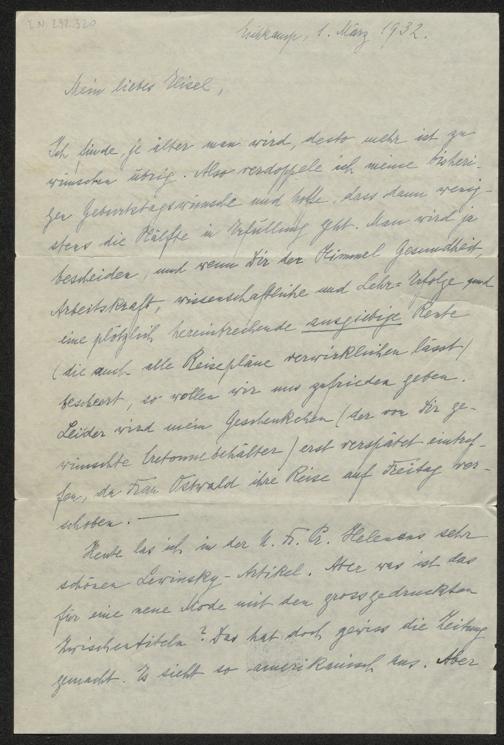 I.N. 232.320
1. März 1932.
Mein liebes Elisel,
Ich finde je älter man wird, desto mehr ist zu
wünschen übrig. Also verdopple ich meine bisheri-
gen Geburtstagswünsche und hoffe, dass dann wenig-
stens die Hälfte in Erfüllung geht. Man wird ja
bescheiden, und wenn Dir der Himmel Gesundheit
Arbeitskraft, wissenschaftliche und Lehr-Erfolge und
eine plötzlich hereinbrechende ausgiebige Rente
(die auch alle Reisepläne verwirklichen lässt)
beschert, so wollen wir uns zufrieden geben.
Leider wird mein Geschenkchen (der von Dir ge-
wünschte Cretonnebehälter) erst verspätet eintref-
fen, da Frau Ostwald ihre Reise auf Freitag ver-
schoben. —
Heute las ich in der N. Fr. Pr. Helenens sehr
schönen Lewinsky-Artikel. Aber was ist das
für eine neue Mode mit den grossgedruckten
Zwischentiteln? Das hat doch gewiss die Zeitung
gemacht. Es sieht so amerikanisch aus. Aber